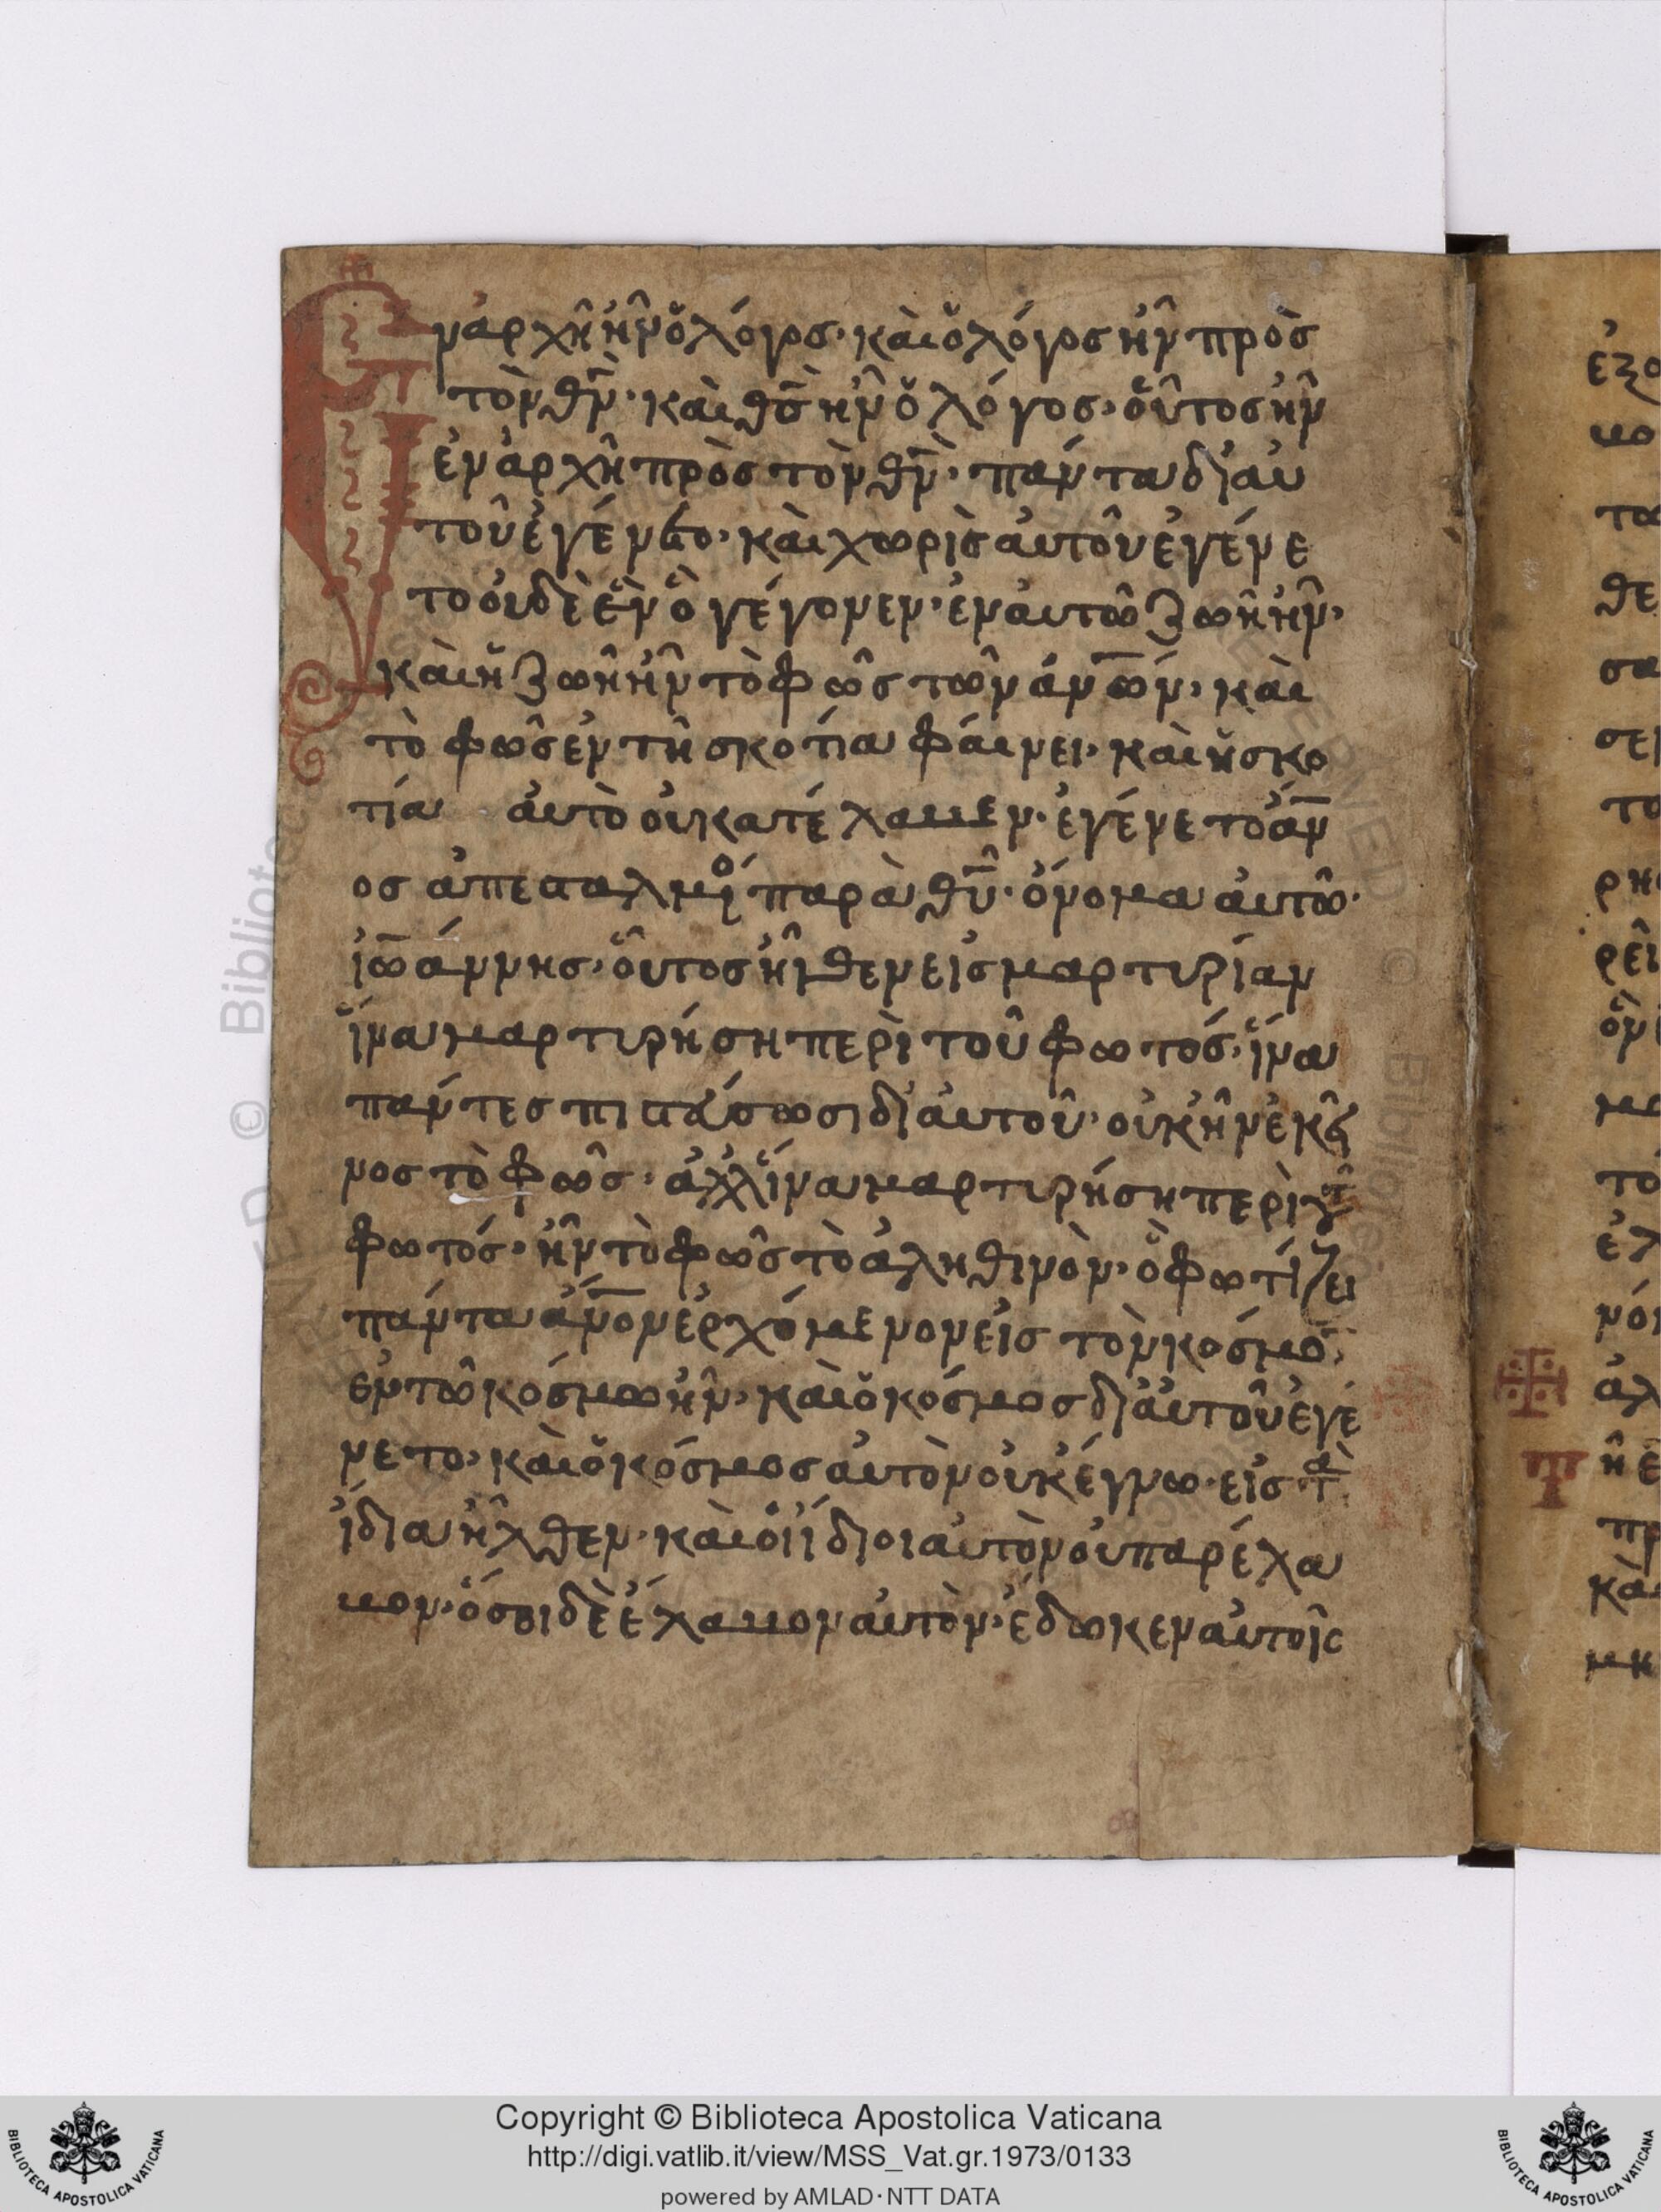 Ἐν ἀρχῆ ἦν ὁ λόγος· καὶ ὁ λόγος ἦν πρὸς
τὸν θν̅· καὶ θς̅ ἦν ὁ λόγος· οὗτος ἦν
ἐν ἀρχῆ πρὸς τὸν θν̅· πάντα δι' αυ
τοῦ ἐγένετο· καὶ χωρὶς αὐτοῦ ἐγένε
το οὐδὲ ἓν ὃ γέγονεν· ἐν αυτῶ ζωῆ ἦν·
καὶ ἡ ζωῆ ἦν τὸ φῶς τῶν ἀν̅ω̅ν· καὶ
τὸ φῶς ἐν τῆ σκοτία φάινει· καὶ ἡ σκο
τία αὐτὸ οὐ κατέλαβεν· ἐγένετο ἀν̅
ος ἀπεσταλμόι παρὰ θῦ̅· ὄνομα αὐτῶ·
ἰω̅άννης· οὗτος ἦλθεν εἰς μαρτυρίαν
ἵνα μαρτυρήση περὶ τοῦ φωτός· ἵνα
πάντες πιστέυσωσι δι' αυτοῦ· οὐκ ἦν ἐκεῖ
νος τὸ φῶς· ἀλλ' ἵνα μαρτυρήση περὶ τοῦ
φωτός· ἦν τὸ φῶς τὸ ἀληθινὸν· ὃ φωτίζει
πάντα ἄν̅ον ἐρχόμενον εἰς τὸν κόσμο̅·
ἐν τῶ κόσμω ἦν· καὶ ὁ κόσμος δι' ἀυτοῦ ἐγέ
νετο· καὶ ὁ κόσμος αὐτὸν οὐκ ἔγνω· εἰς τὰ
ἴδια ἦλθεν· καὶ οἱ ἴδιοι αὐτὸν οὐ παρέλα
βον· ὅσοι δὲ ἔλαβον αὐτὸν· ἔδωκεν αὐτοῖς
Copyright © Biblioteca Apostolica Vaticana
http://digi.vatlib.it/view/MSS_Vat.gr.1973/0133
powered by AMLAD·NTT DATA
BIBLIOTECA APOSTOLICA VATICANA
BIBLIOTECA APOSTOLICA VATICANA